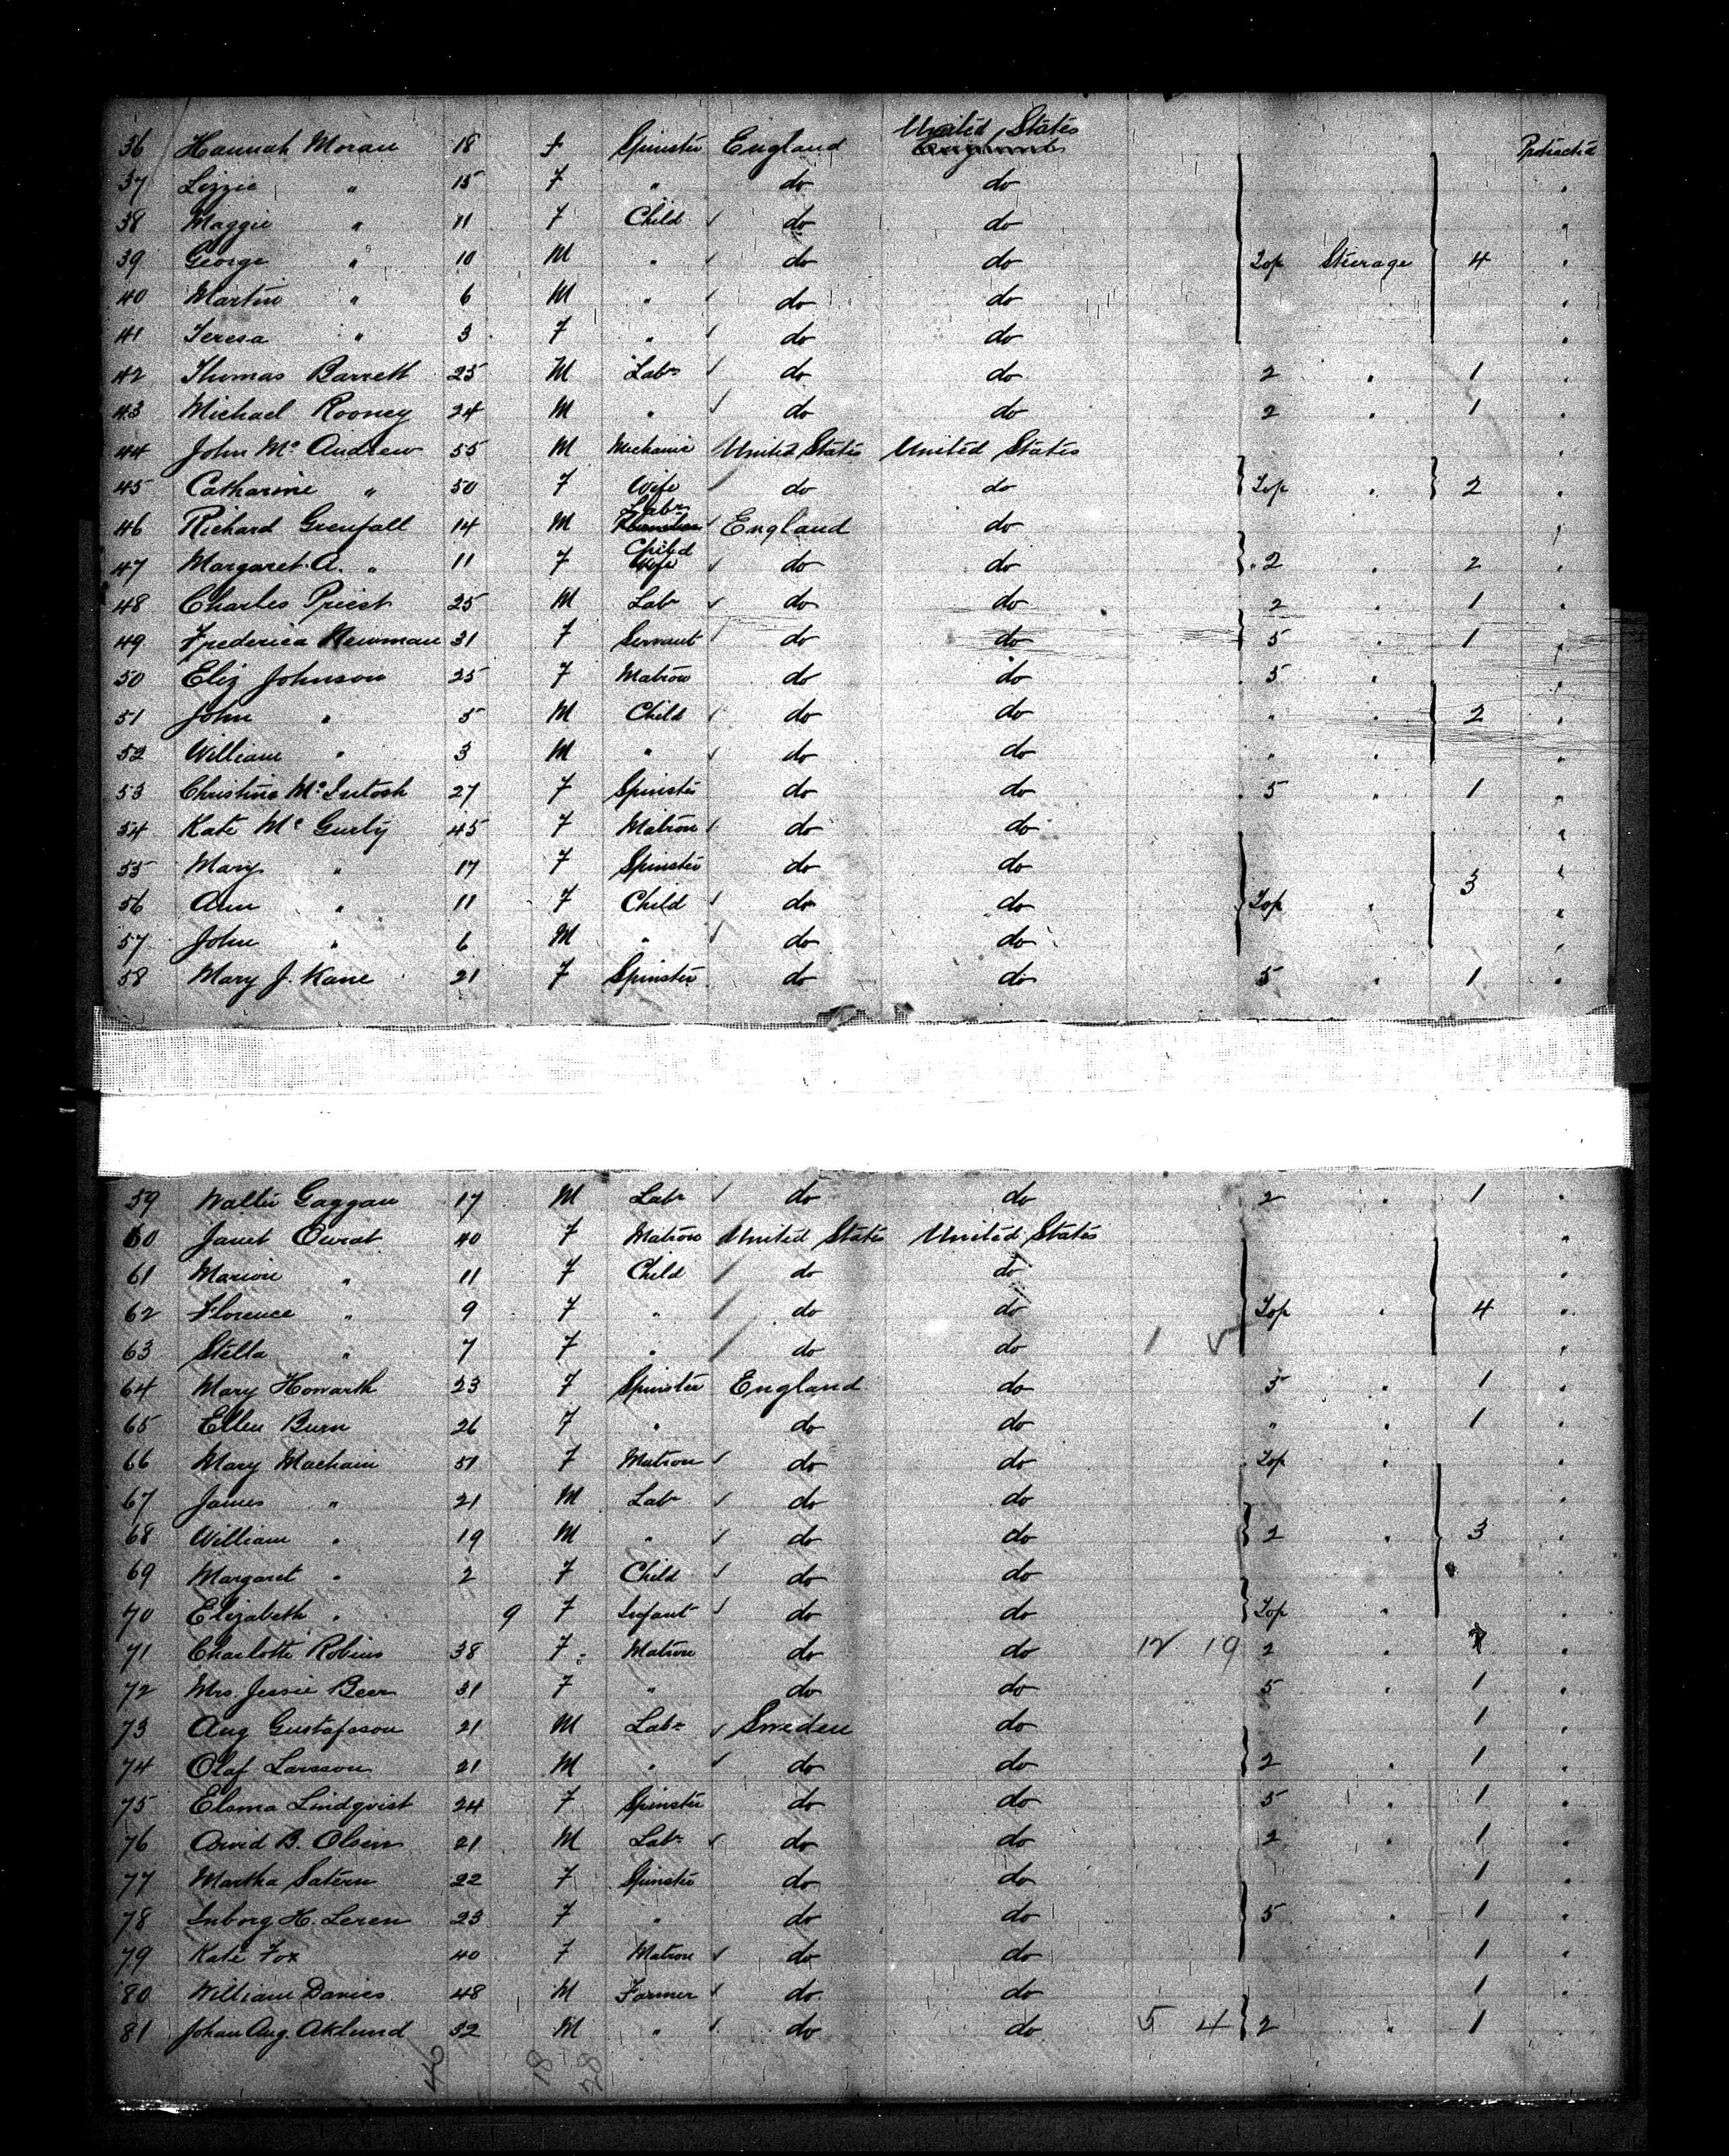 36 Hannah Moran 18 F Spinster England United States Protracted
37 Lizzie " 15 F " do do "
38 Maggie " 11 F Child ✓ do do "
39 George " 10 M " ✓ do do Top Steerage 4 "
40 Martin " 6 M " ✓ do do "
41 Teresa " 3 F " ✓ do do "
42 Thomas Barrett 25 M Labr ✓ do do 2 " 1 "
43 Michael Rooney 24 M " ✓ do do 2 " 1 "
44 John Mc Andrew 55 M Mechanic United States United States "
45 Catharine " 50 F Wife ✓ do do Top " 2 "
46 Richard Grenfall 14 M Labr ✓ England do "
47 Margaret A. " 11 F Child Wife ✓ do do 2 " 2 "
48 Charles Priest 25 M Labr ✓ do do 2 " 1 "
49 Frederica Newman 31 F Servant ✓ do do 5 " 1 "
50 Eliz Johnson 25 F Matron do do 5 " "
51 John " 5 M Child ✓ do do " " 2 "
52 William " 3 M " ✓ do do " " "
53 Christina Mc Intosh 27 F Spinster do do 5 " 1 "
54 Kate Mc Gurty 45 F Matron ✓ do do "
55 Mary " 17 F Spinster do do 3 "
56 Ann " 11 F Child ✓ do do Top " "
57 John " 6 M " ✓ do do "
58 Mary J. Kane 21 F Spinster do do 5 " 1 "
59 Walter Gaggan 17 M Labr ✓ do do 2 " 1 "
60 Janet 40 F Matron United States United States "
61 Marion " 11 F Child ✓ do do "
62 Florence " 9 F " ✓ do do Top " 4 "
63 Stella " 7 F " ✓ do do 1 ✓ "
64 Mary Howarth 23 F Spinster England do 5 " 1 "
65 Ellen Burn 26 F " do do " " 1 "
66 Mary Machain 51 F Matron ✓ do do Top " "
67 James " 21 M Labr ✓ do do "
68 William " 19 M " ✓ do do 2 " 3 "
69 Margaret " 2 F Child ✓ do do "
70 Elizabeth " 9 F Infant ✓ do do Top " "
71 Charlotte Robins 38 F Matron do do 12 19 2 " "
72 Mrs. Jessie Beer 31 F " do do 5 " 1 "
73 Aug Gustafsson 21 M Labr ✓ Sweden do 1 "
74 Olaf Larsson 21 M " ✓ do do 2 " 1 "
75 Elsma Lindqvist 24 F Spinster do do 5 " 1 "
76 Arvid B. Olsen 21 M Labr ✓ do do 2 " 1 "
77 Martha Satern 22 F Spinster do do 1 "
78 Inborg H. Leren 23 F " do do 5 " 1 "
79 Kate Fox 40 F Matron ✓ do do 1 "
80 William Davies 48 M Farmer ✓ do do 1 "
81 Johan Aug. Aklund 32 M " ✓ do do 5 4 2 " 1 "
46 18 28